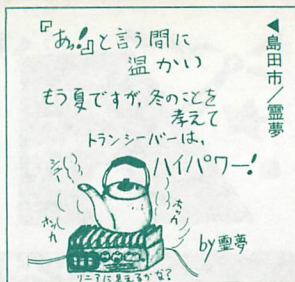 ◀島田市／霊夢
『あっ!』と言う間に
温かい
もう夏ですが、冬のことを
考えて
トランシーバーは、
ハイパワー!
シュー
ホッカ
ホッカ
by霊夢
リニアに見えるかな?